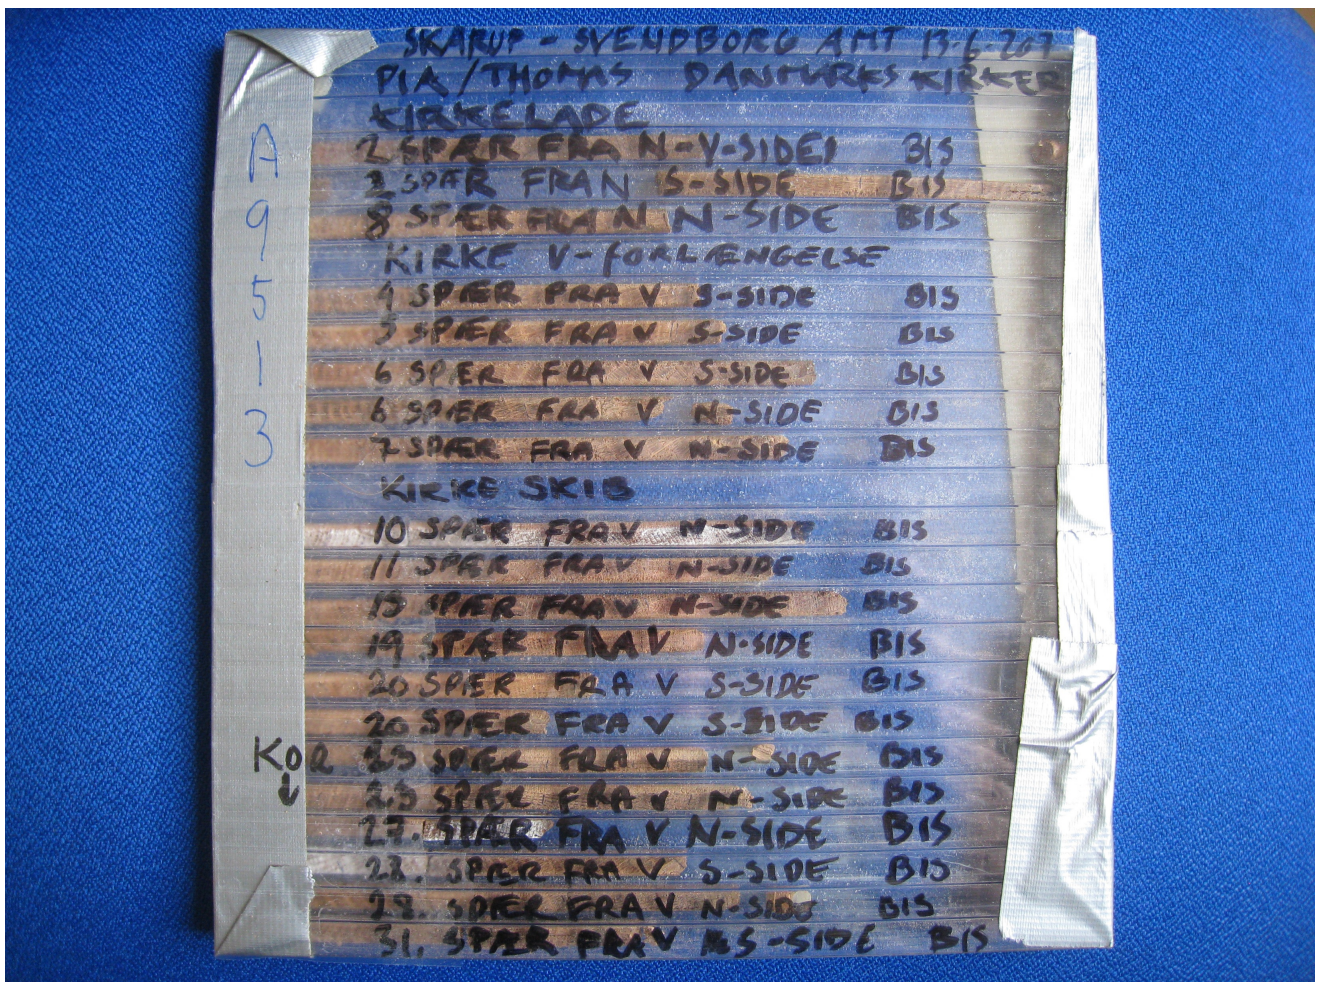 SKARUP - SVENDBORG AMT 13-6-207
PIA/THOMAS DANMARKS KIRKER
KIRKELADE
2 SPÆR FRA N-V-SIDE BIS
2 SPÆR FRA N S-SIDE BIS
8 SPÆR FRA N N-SIDE BIS
KIRKE V-FORLÆNGELSE
4 SPÆR FRA V S-SIDE BIS
5 SPÆR FRA V S-SIDE BIS
6 SPÆR FRA V S-SIDE BIS
6 SPÆR FRA V N-SIDE BIS
7 SPÆR FRA V N-SIDE BIS
KIRKE SKIB
10 SPÆR FRA V N-SIDE BIS
11 SPÆR FRA V N-SIDE BIS
SPÆR FRA V N-SIDE BIS
19 SPÆR FRA V N-SIDE BIS
20 SPÆR FRA V S-SIDE BIS
20 SPÆR FRA V S-SIDE BIS
KOR SPÆR FRA V N-SIDE BIS
SPÆR FRA V N-SIDE BIS
27. SPÆR FRA V N-SIDE BIS
28. SPÆR FRA V S-SIDE BIS
28. SPÆR FRA V N-SIDE BIS
31. SPÆR FRA V S-SIDE BIS
A
9
5
1
3